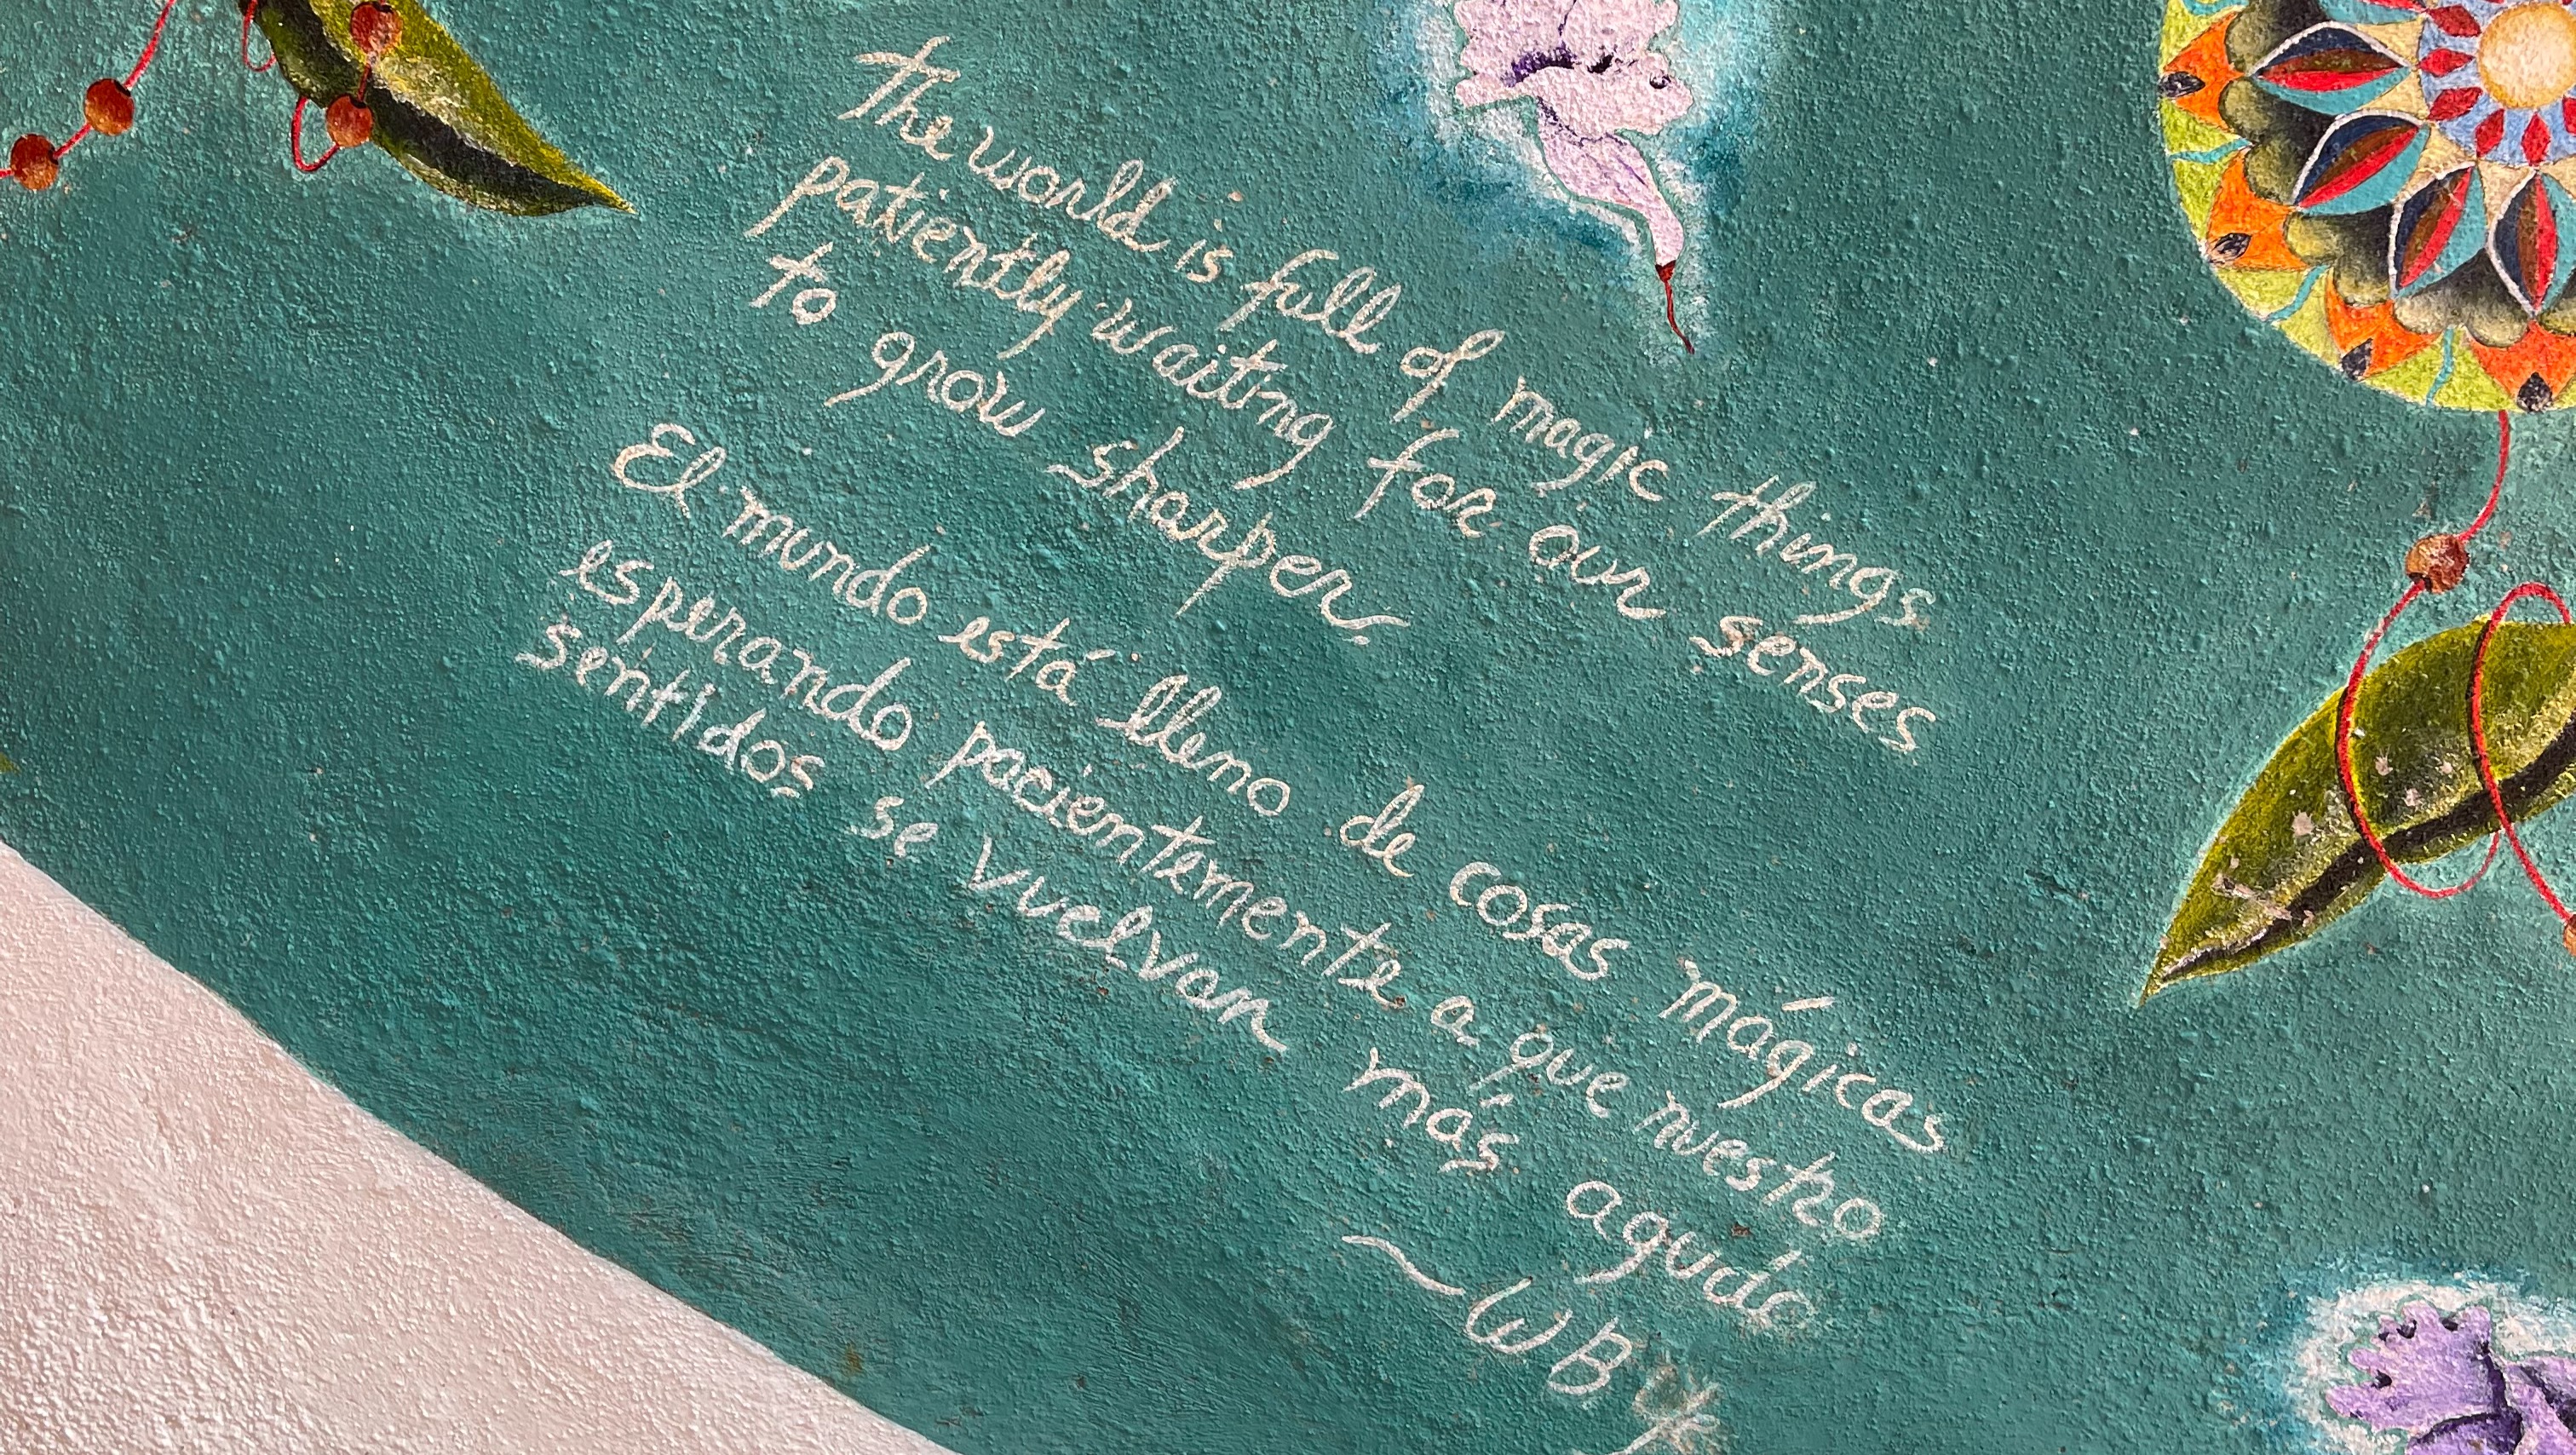 The world is full of magic things
patiently waiting for our senses
to grow sharper.
El mundo está lleno de cosas mágicas
esperando pacientemente a que nuestro
sentidos se vuelvan más agudo
~WBY